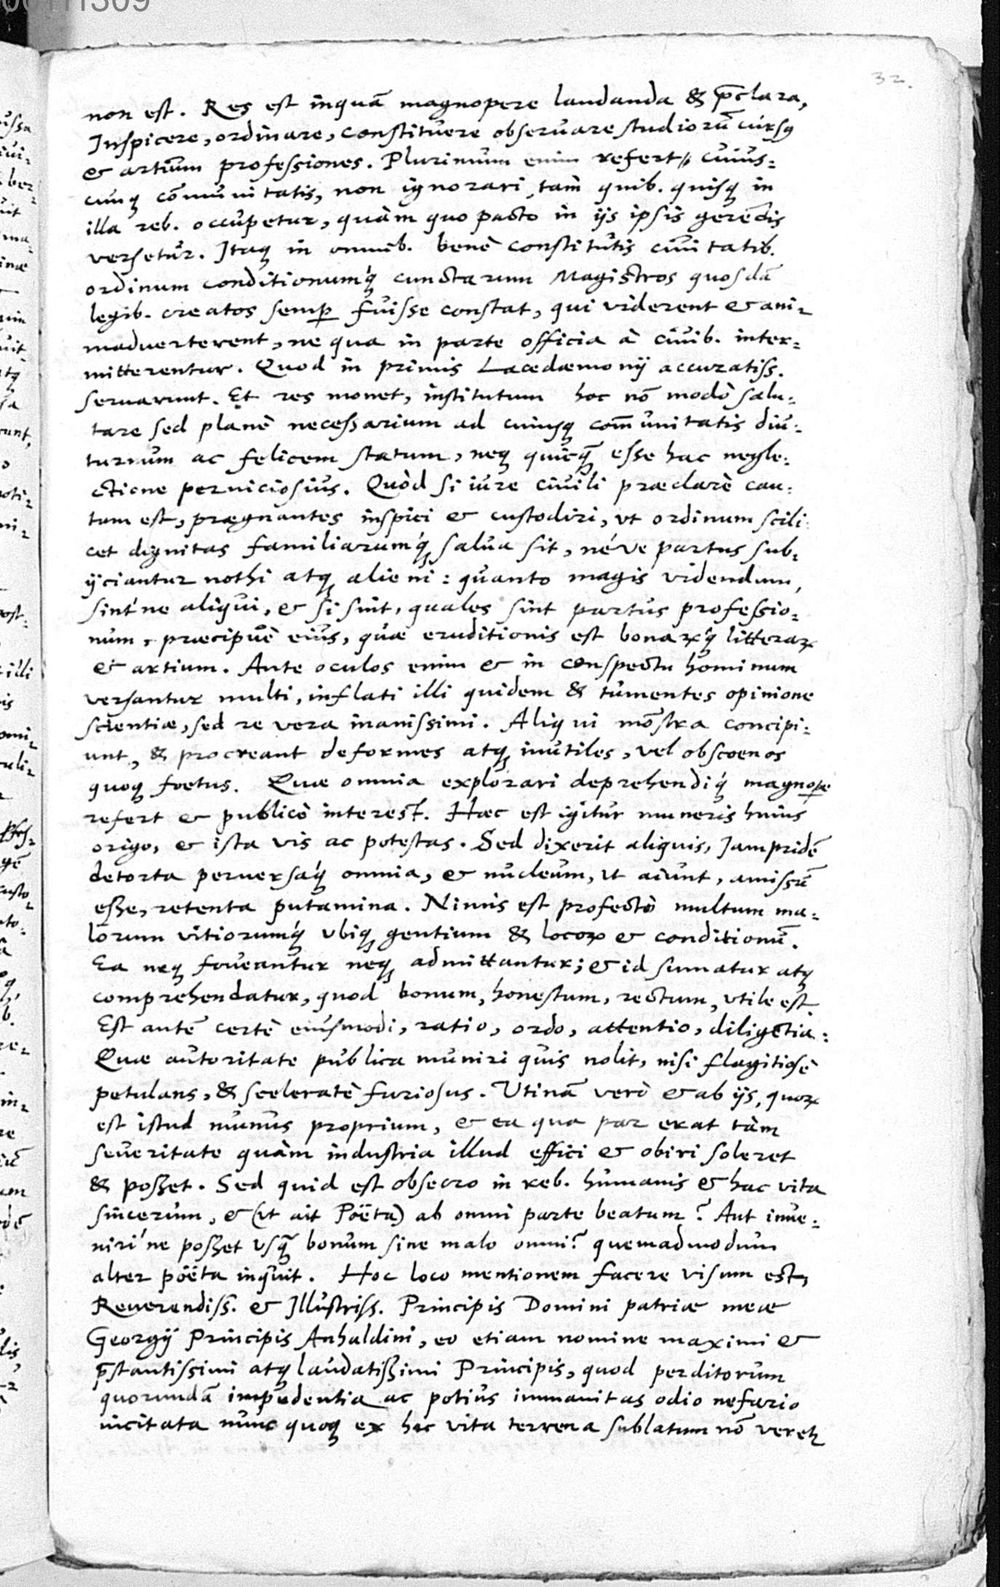 32.
non est. Res est inquā magnopere laudanda & p̄clara,
Inspicere, ordinare, constituere obseruare studiorū cursꝫ
& artium professiones. Plurimum enim refert, cuius=
cunqꝫ cōmunitatis, non ignorari tam quib. quisqꝫ in
illa reb. occupetur, quàm quo pacto in ijs ipsis gerēdis
versetur. Itaqꝫ in omnib. bene constitutis ciuitatib.
ordinum conditionumqꝫ́ cunctarum Magistros quosdā
legib. creatos semp̱ fuisse constat, qui viderent & ani=
maduerterent, ne qua in parte officia à ciuib. inter=
mitterentur. Quod in primis Lacedæmonij accuratiss.
seruarunt. Et res monet, institutum hoc nō modò salu=
tare sed planè necessarium ad cuiusqꝫ com̄unitatis diu=
turnum ac felicem statum, neqꝫ quicqꝫ̄ esse hac negle=
ctione perniciosius. Quòd si iure ciuili præclarè cau=
tum est, prægnantes inspici & custodiri, vt ordinum scili=
cet dignitas familiarumqꝫ́ salua sit, né've partus sub=
ijciantur nothi atqꝫ alieni: quanto magis videndum,
sint'ne aliqui, & si sint, quales sint partus professio=
num, præcipuè eius, quæ eruditionis est bonaꝝqꝫ́ litteraꝝ
& artium. Ante oculos enim & in conspectu hominum
versantur multi, inflati illi quidem & tumentes opinione
scientiæ, sed re vera inanissimi. Aliqui mōstra concipi=
unt, & procreant deformes atqꝫ inutiles, vel obscoenos
quoqꝫ foetus. Quæ omnia explorari deprehendiqꝫ́ magnop̱e
refert & publicè interest. Hæc est igitur muneris huius
origo, & ista vis ac potestas. Sed dixerit aliquis, Iampridē
detorta peruersaqꝫ́ omnia, & nucleum, vt aiunt, amissū
esse, retenta putamina. Nimis est profectò multum ma=
lorum vitiorumqꝫ́ vbiqꝫ gentium & locoꝝ & conditionū.
Ea neqꝫ foueantur neqꝫ admittantur; & id sumatur atqꝫ
comprehendatur, quod bonum, honestum, rectum, vtile est.
Est autē certè eiusmodi, ratio, ordo, attentio, diligētia:
Quæ autoritate publica muniri quis nolit, nisi flagitiosè
petulans, & sceleratè furiosus. Vtinā verò & ab ijs, quoꝝ
est istud munus proprium, & ea qua par erat tàm
seueritate quàm industria illud effici & obiri soleret
& posset. Sed quid est obsecro in reb. humanis & hac vita
sincerum, & (vt ait Poëta) ab omni parte beatum? Aut inue=
niri'ne posset vsqꝫ̄ bonum sine malo omni? quemadmodum
alter poëta inquit. Hoc loco mentionem facere visum est,
Reuerendiss. & Illustriss. Principis Domini patriæ meæ
Georgij Principis Anhaldini, eo etiam nomine maximi &
p̄stantissimi atqꝫ laudatissimi Principis, quod perditorum
quorundā impudentia ac potius immanitas odio nefario
incitata nunc quoqꝫ ex hac vita terrena sublatum nō veretꝫ